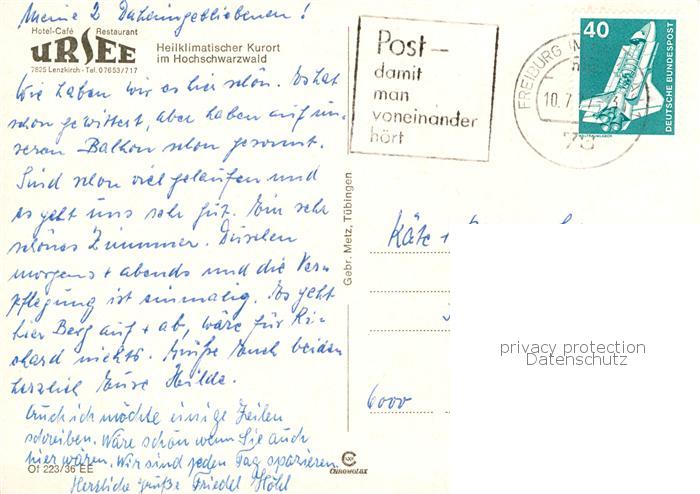 Meine 2 Daheimgebliebenen!
Hotel-Café Restaurant
URSEE
7825 Lenzkirch - Tel. 07653/717
Heilklimatischer Kurort
im Hochschwarzwald
Wir haben wir es hier schön. Es hat
schon gewittert, aber haben auf un-
serem Balkon schon gesonnt.
Sind schon viel gelaufen und
es geht uns sehr gut. Ein sehr
schönes Zimmer. Duschen
morgens + abends und die Ver-
pflegung ist einmalig. Es geht
hier Berg auf + ab, wäre für Ri-
chard nichts. Grüße Euch beiden
herzlich Eure Hilde.
Auch ich möchte einige Zeilen
schreiben. Wäre schön wenn Sie auch
hier wären. Wir sind jeden Tag spazieren
Herzliche Grüße Friedel
Of 223/36 EE
Gebr. Metz, Tübingen
Post-
damit
man
voneinander
hört
FREIBURG IM
10.7
78
40
DEUTSCHE BUNDESPOST
WELTRAUMLABOR
Käte +
6000
privacy protection
Datenschutz
Chromolux